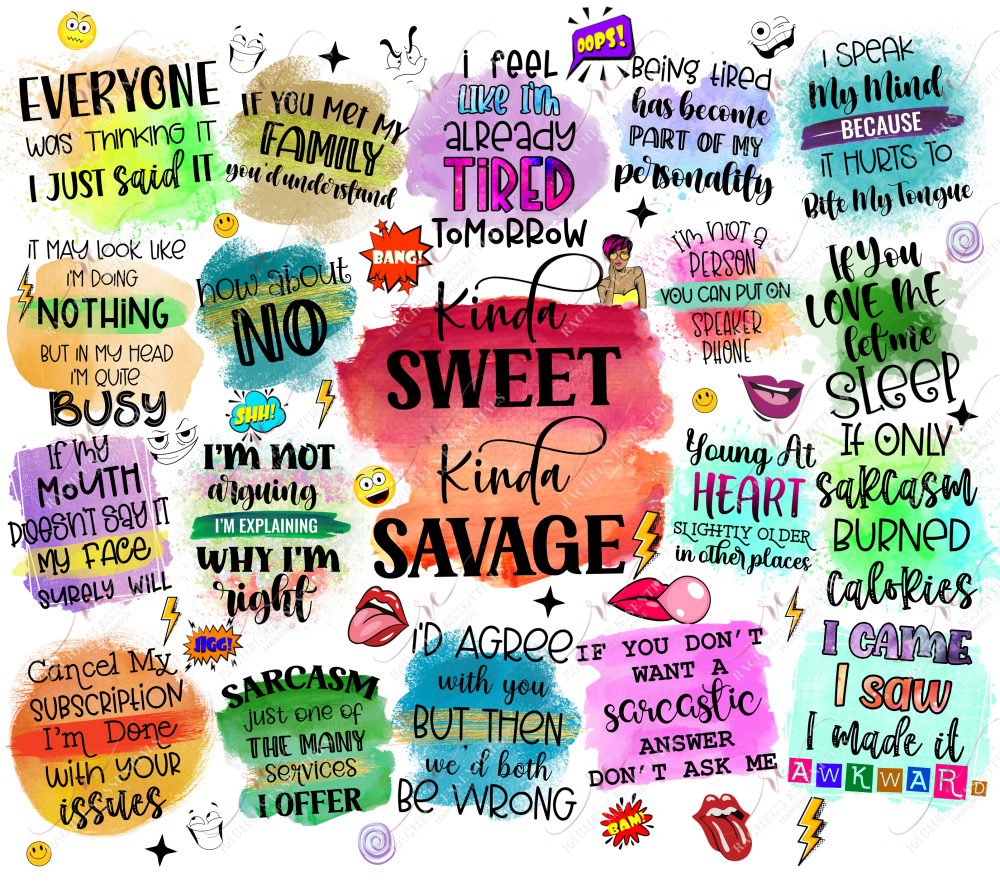 EVERYONE
WAS THINKING IT
I JUST SAID IT
IF YOU MET MY
FAMILY
you'd understand
I FEEL
LIKE I'M
ALREADY
TIRED
TOMORROW
OOPS!
BEING TIRED
has become
PART OF MY
personality
I SPEAK
My Mind
BECAUSE
IT HURTS TO
Bite My Tongue
IT MAY LOOK LIKE
I'M DOING
NOTHING
BUT IN MY HEAD
I'M QUITE
BUSY
how about
NO
BANG!
Kinda
SWEET
Kinda
SAVAGE
I'M NOT A
PERSON
YOU CAN PUT ON
SPEAKER
PHONE
If You
LOVE ME
let me
SLEEP
SHH!
IF MY
MOUTH
DOESN'T SAY IT
MY FACE
SURELY WILL
I'M NOT
arguing
I'M EXPLAINING
WHY I'M
right
Young At
HEART
SLIGHTLY OLDER
in other places
If ONLY
SARCASM
BURNED
CALORIES
Cancel My
SUBSCRIPTION
I'm Done
WITH YOUR
issues
JIGG!
SARCASM
just one of
THE MANY
services
I OFFER
I'D AGREE
with you
BUT THEN
we'd both
BE WRONG
IF YOU DON'T
WANT A
sarcastic
ANSWER
DON'T ASK ME
BAM!
I CAME
I saw
I made it
AWKWARD